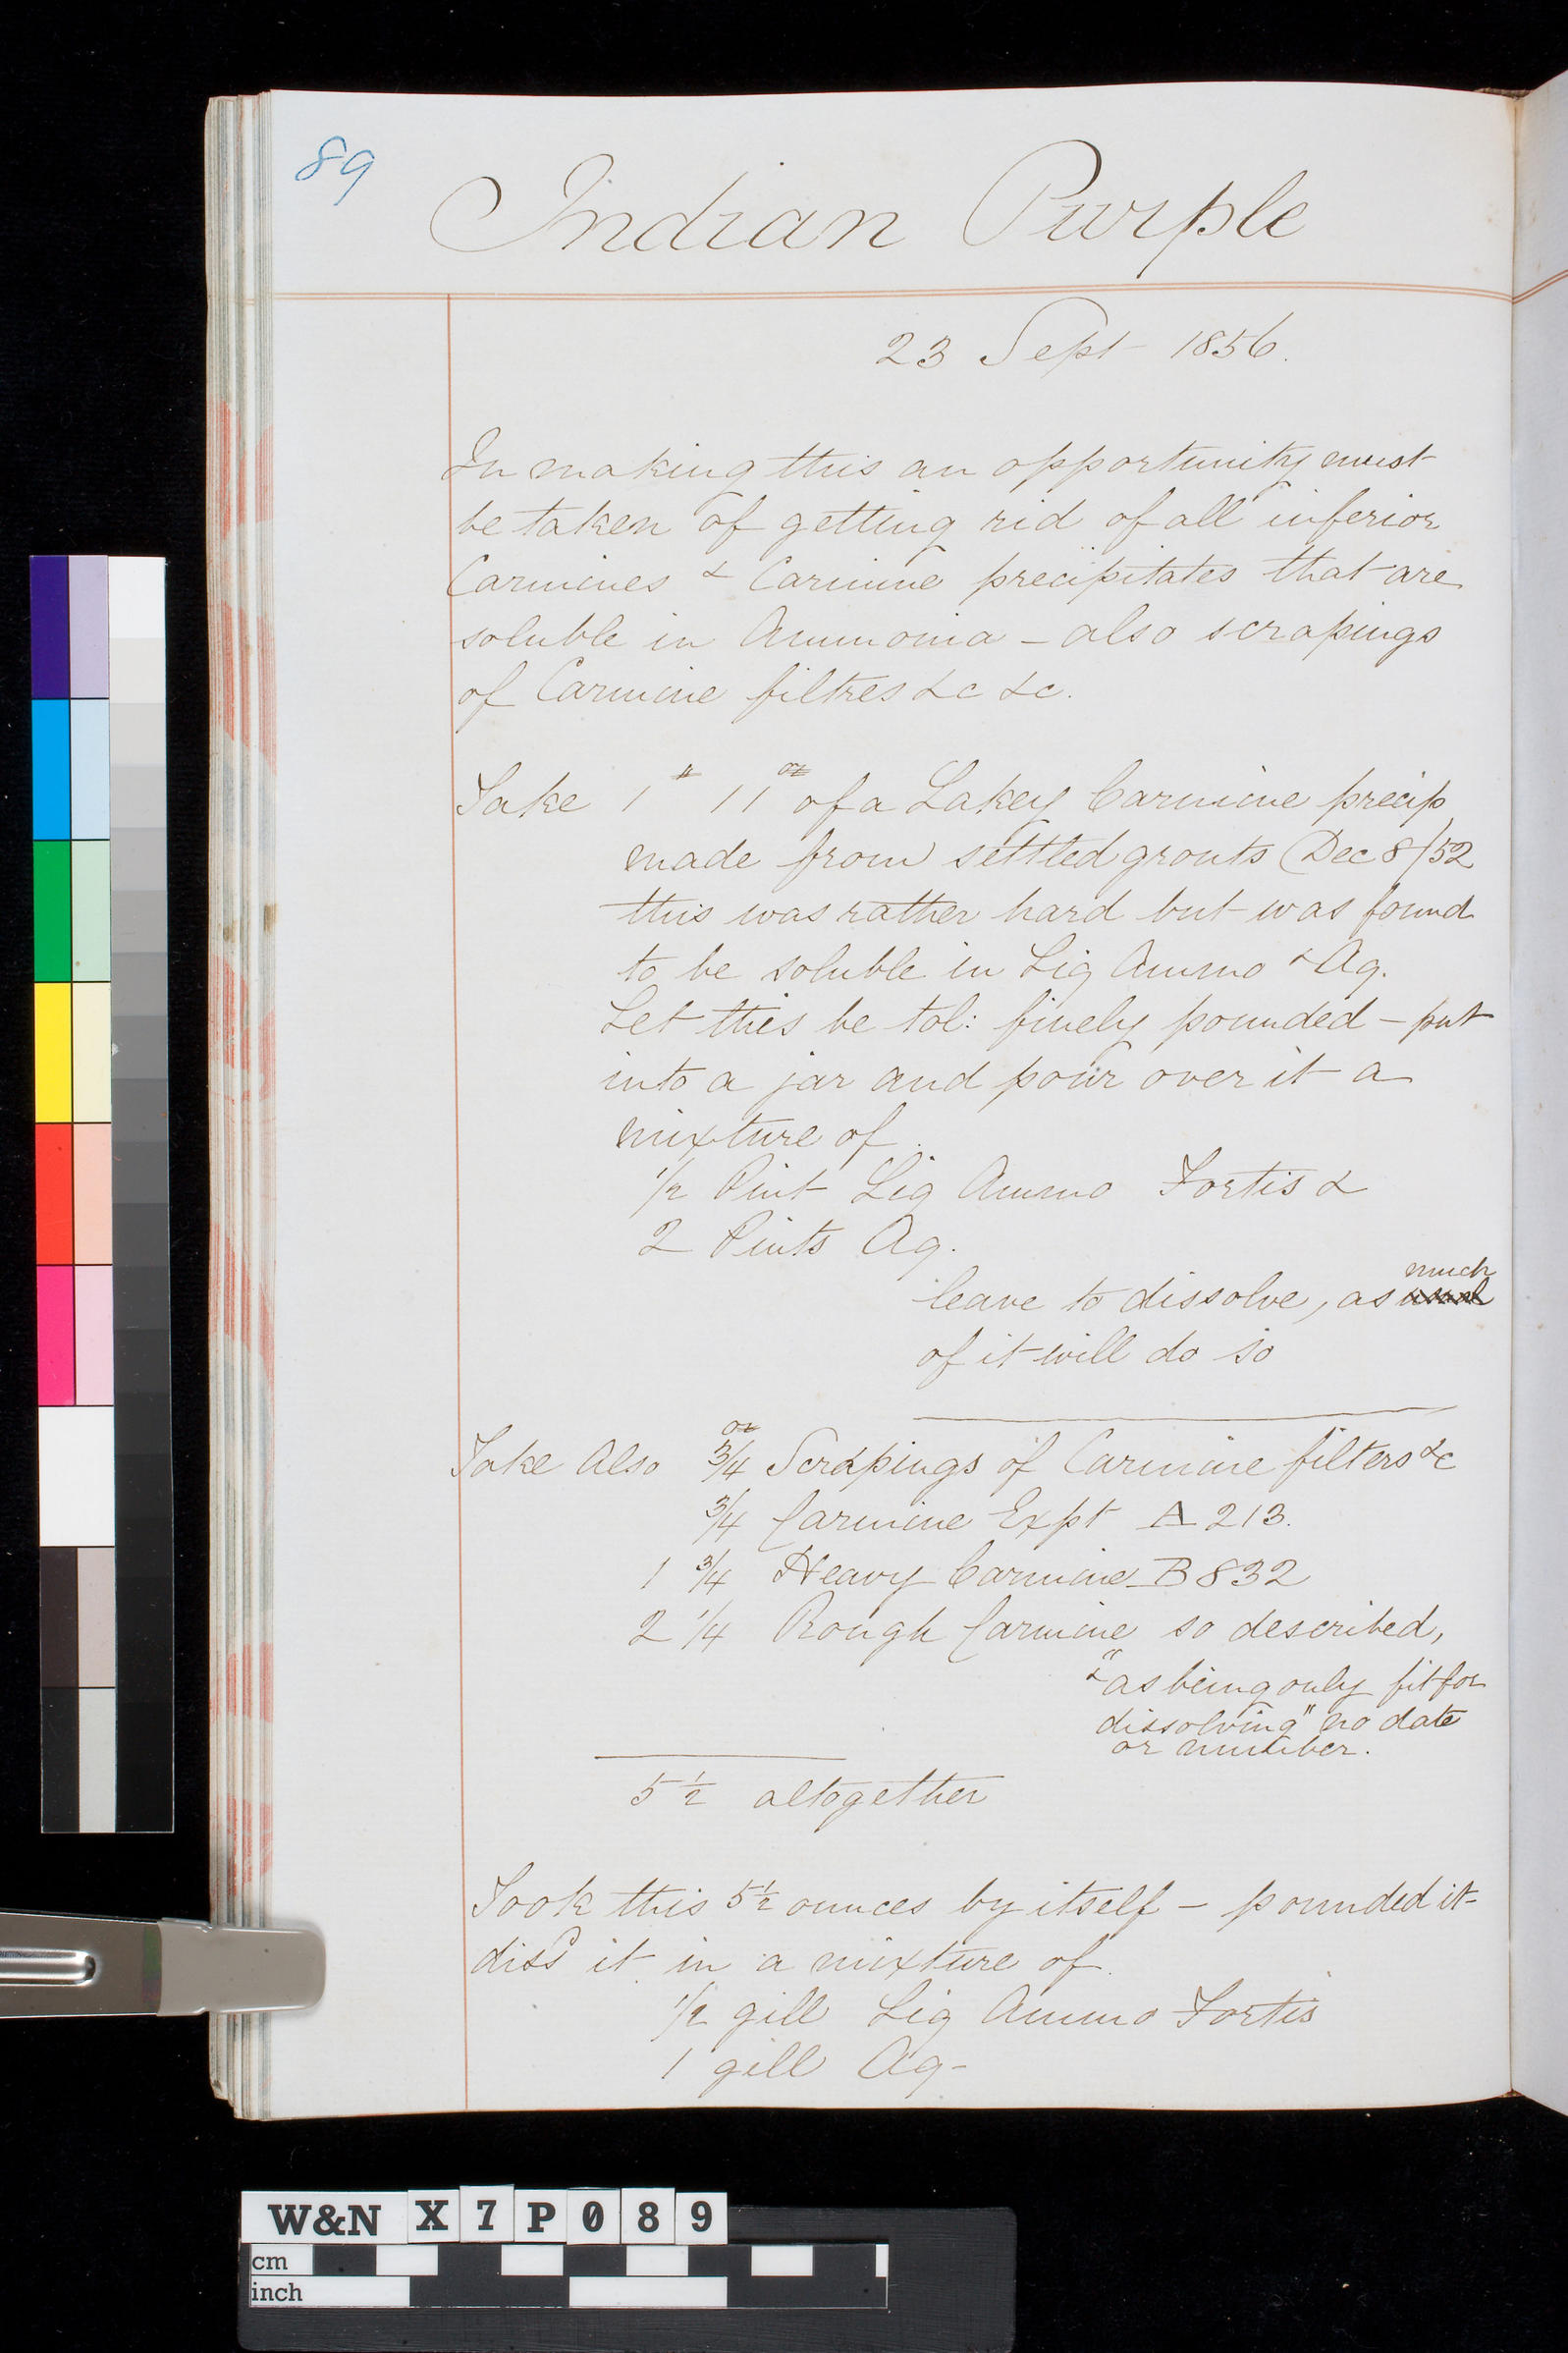 89
Indian Purple
23 Sept 1856.
In making this an opportunity must
be taken of getting rid of all inferior
Carmines & Carmine precipitates that are
soluble in Ammonia – also scrapings
of Carmine filtres &c &c.
Take 1 lb 11 oz of a Lakey Carmine precip
made from settled grouts (Dec 8/52
this was rather hard but was found
to be soluble in Liq Ammo & Aq.
Let this be tol: finely pounded – put
into a jar and pour over it a
mixture of
1/2 Pint Liq Ammo Fortis &
2 Pints Aq.
much
leave to dissolve, as usual
of it will do so
oz
Take Also 3/4 Scrapings of Carmine filters &c
3/4 Carmine Expt A 213.
1 3/4 Heavy Carmine B 832
2 1/4 Rough Carmine so described,
& "as being only fit for
dissolving" no date
or number.
5 1/2 altogether
Took this 5 1/2 ounces by itself – pounded it
dissd it in a mixture of
1/2 gill Liq Ammo Fortis
1 gill Aq –
W&N X7P089
cm
inch